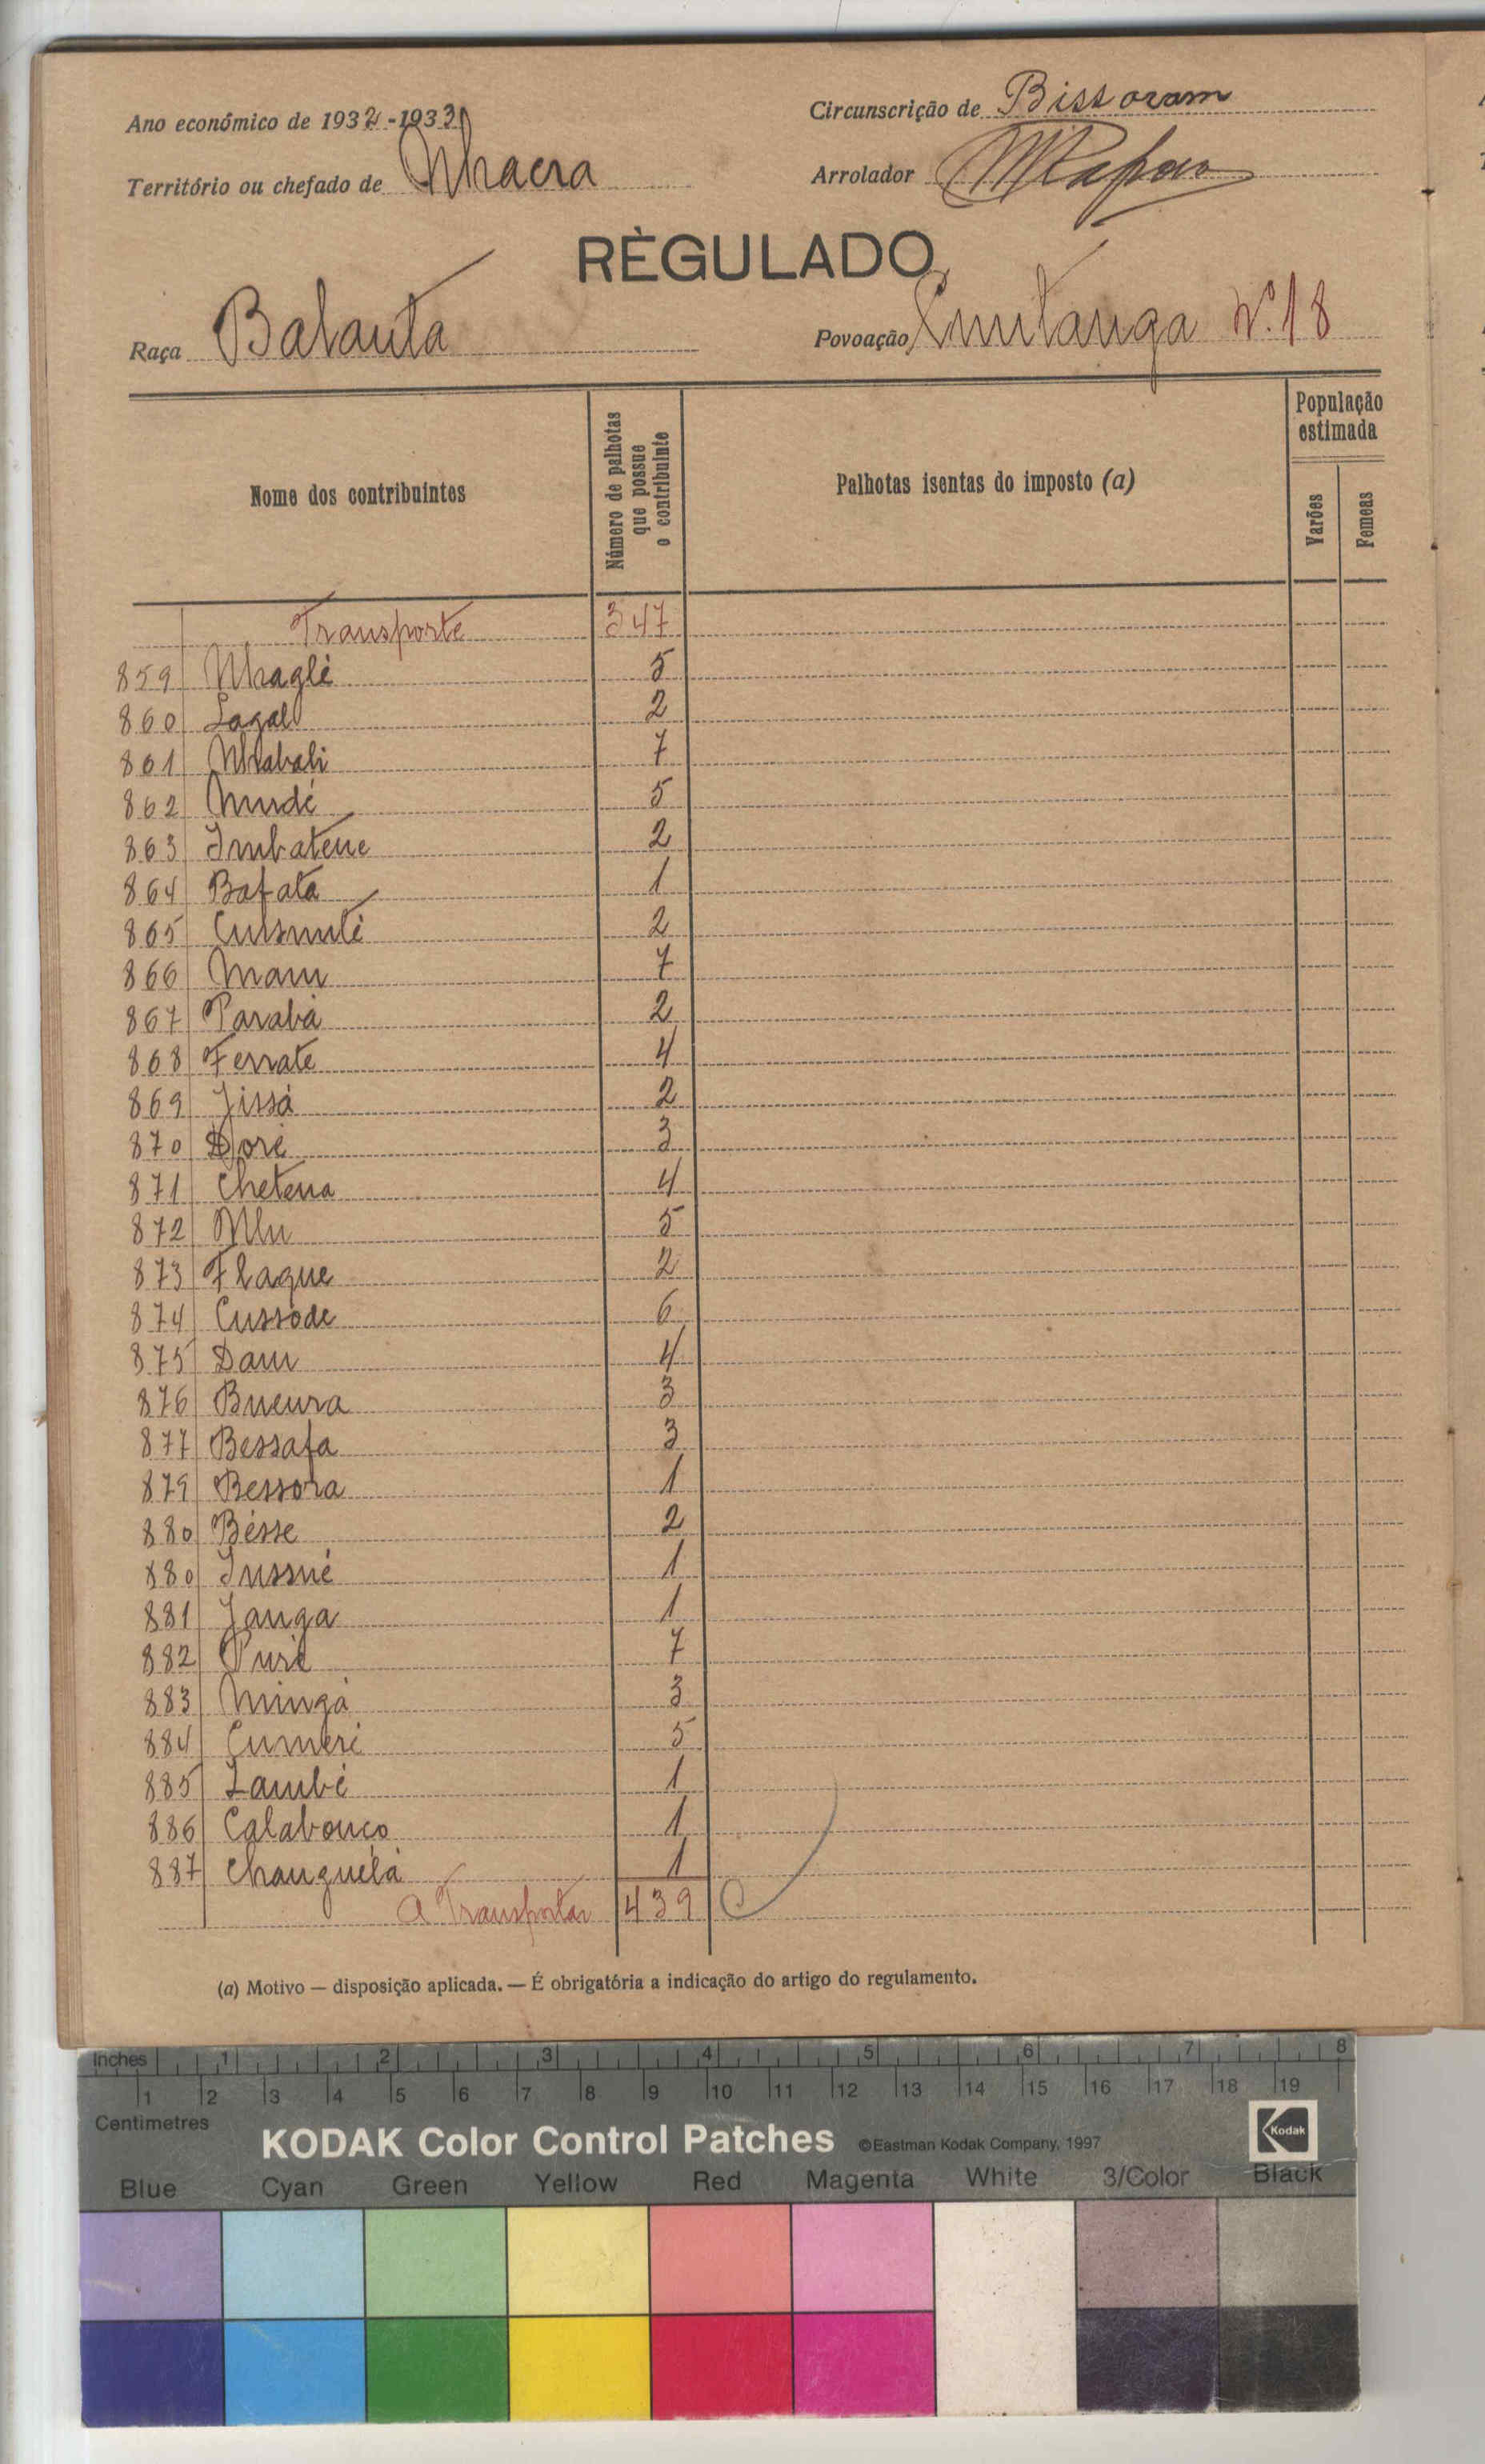 Ano económico de 1932-1933
Circunscrição de Bissoram
Território ou chefado de Nhacra
Arrolador
RÈGULADO
Raça Balanta
Povoação Cuntanga N.º 18
Nome dos contribuintes
Número de palhotas que possue o contribuinte
Palhotas isentas do imposto (a)
População estimada
Varões
Femeas
Transporte 347
859 Nhaglé 5
860 Lagal 2
861 Nhabali 7
862 Mudé 5
863 Imbatene 2
864 Bafata 1
865 Cusmuté 2
866 Mam 7
867 Parabá 2
868 Ferrate 4
869 Jissá 2
870 Djoré 3
871 Chetena 4
872 Mlu 5
873 Flaque 2
874 Cussode 6
875 Dam 4
876 Bueura 3
877 Bessafa 3
879 Bessora 1
880 Bésse 2
880 Jussué 1
881 Janga 1
882 Puré 7
883 Mingá 3
884 Cumeré 5
885 Lambé 1
886 Calabouco 1
887 Changuelá 1
A Transportar 439
(a) Motivo — disposição aplicada. — É obrigatória a indicação do artigo do regulamento.
Inches 1 2 3 4 5 6 7 8
1 2 3 4 5 6 7 8 9 10 11 12 13 14 15 16 17 18 19
Centimetres
KODAK Color Control Patches ©Eastman Kodak Company, 1997 Kodak
Blue Cyan Green Yellow Red Magenta White 3/Color Black